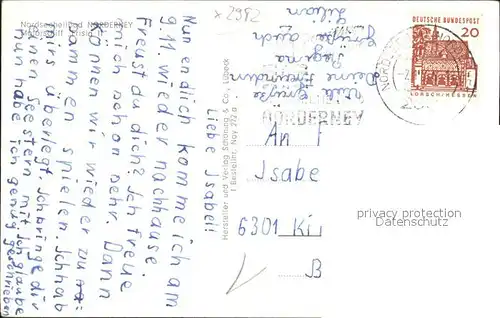 Nordseeheilbad NORDERNEY
Motorschiff „Frisia I“
x 2982
Liebe Isabel!
Nun endlich komme ich am
9.11. wieder nachhause.
Freust du dich? Ich freue
mich schon sehr. Dann
können wir wieder zu
sammen spielen. Ich hab
mir's überlegt. Ich bringe dir
einen Seestern mit. Ich glaube
nun habe ich genug geschrieben
Viele Grüße
Deine Freundin
Regina
Grüße auch
Lilian
Hersteller und Verlag Schöning & Co., Lübeck
Bestellnr. Noy 272
DEUTSCHE BUNDESPOST
20
LORSCH/HESSEN
NORDERNEY
An F
Isabe
6301 Ki
B
privacy protection
Datenschutz